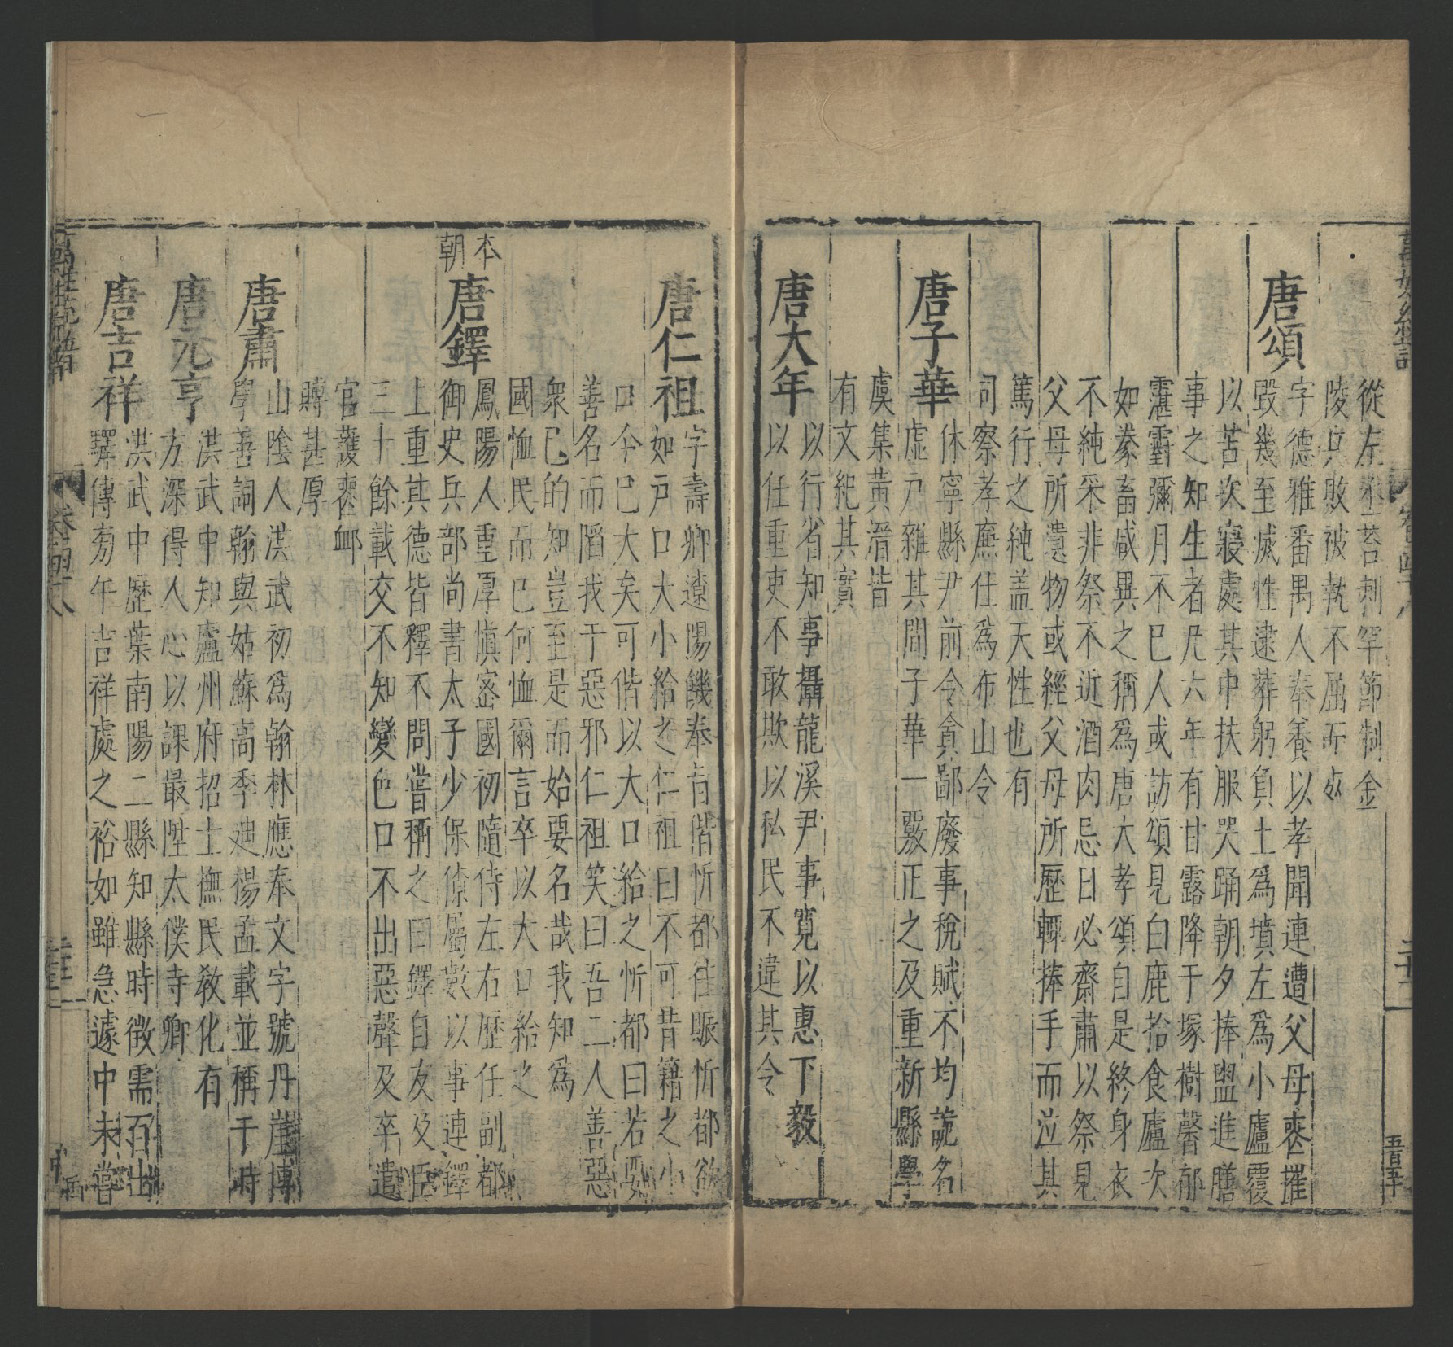 從左丞荅剌罕節制金
陵兵敗被執不屈而死
唐頌
字德雅番禺人奉養以孝聞連遭父母喪摧
毀幾至滅性逮葬躬負土爲墳左爲小廬覆
以苫次寢處其中扶服哭踊朝夕捧盥進膳
事之如生者凡六年有甘露降于塚樹馨郁
霮䨴彌月不已人或訪頌見白鹿拾食廬次
如豢畜咸異之稱爲唐大孝頌自是終身衣
不純采非祭不近酒肉忌日必齋肅以祭見
父母所遺物或經父母所歷輙捧手而泣其
篤行之純盖天性也有
司察孝廉仕爲布山令
唐子華
休寧縣尹前令貪鄙廢事稅賦不均詭名
虛亢雜其間子華一覈正之及重新縣學
虞集黄溍皆
有文紀其實
唐大年
以行省知事攝龍溪尹事寬以惠下毅
以仕重吏不敢欺以私民不違其令
唐仁祖
字壽卿遼陽饑奉旨偕忻都往賑忻都欲
如戸口大小給之仁祖曰不可昔籍之小
口今巳大矣可偕以大口給之忻都曰若要
善名而䧟我于惡邪仁祖笑曰吾二人善惡
衆巳的知豈至是而始要名哉我知爲
國恤民而巳何恤爾言卒以大口給之
本朝
唐鐸
鳳陽人重厚慎密國初隨侍左右歷任副都
御史兵部尚書太子少保僚屬數以事連鐸
上重其德皆釋不問嘗稱之曰鐸自友及臣
三十餘載交不知變色口不出惡聲及卒遣
官護喪䘏
賻甚厚
唐肅
山陰人洪武初爲翰林應奉文字號丹崖博
學善詞翰與姑蘇高季廸楊孟載並稱于時
唐元亨
洪武中知廬州府招士撫民敎化有
方深得人心以課最陞太僕寺卿
唐吉祥
洪武中歷葉南陽二縣知縣時徴需百出
驛傳旁午吉祥處之裕如雖急遽中未嘗